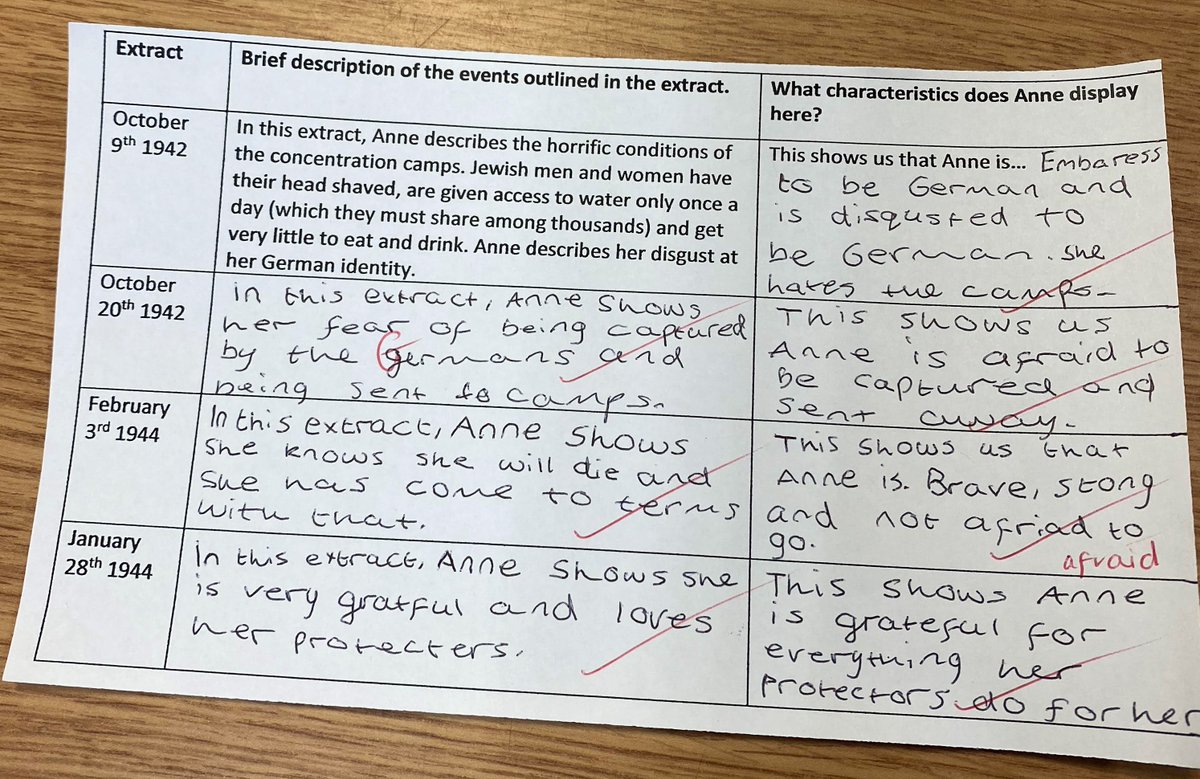 Extract
Brief description of the events outlined in the extract.
What characteristics does Anne display
here?
October
9th 1942
In this extract, Anne describes the horrific conditions of
the concentration camps. Jewish men and women have
their head shaved, are given access to water only once a
day (which they must share among thousands) and get
very little to eat and drink. Anne describes her disgust at
her German identity.
This shows us that Anne is... Embaress
to be German and
is disqusted to
be German. she
hates the camps.
October
20th 1942
in this extract, Anne shows
her fear of being captured
by the germans and
being sent to camps.
This shows us
Anne is afraid to
be captured and
sent away.
February
3rd 1944
In this extract, Anne shows
she knows she will die and
she has come to terms
with that.
This shows us that
Anne is. Brave, stong
and not afriad to
go.
afraid
January
28th 1944
In this extract, Anne shows she
is very gratful and loves
her protecters.
This shows Anne
is grateful for
everything her
protectors do for her